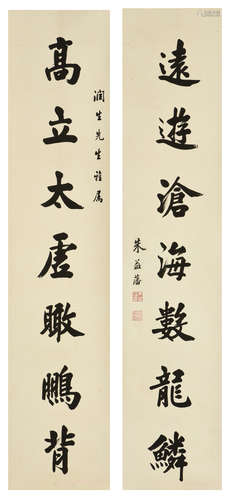 高立太虛瞰鵬背
潤生先生雅屬
遠遊滄海數龍鱗
朱益藩